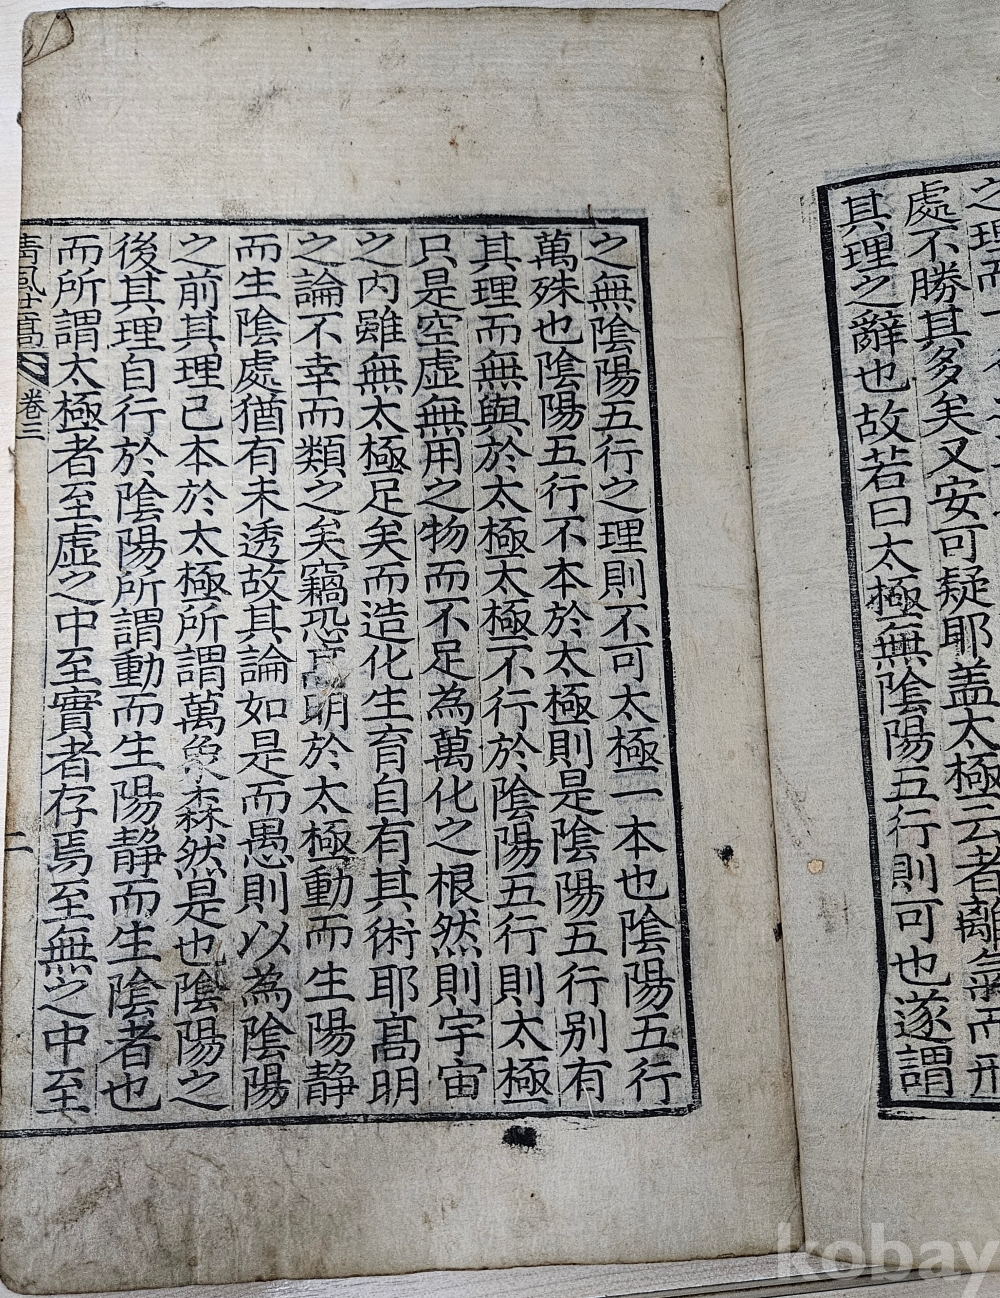 之理而一
處不勝其多矣又安可疑耶盖太極云者離氣而形
其理之辭也故若曰太極無陰陽五行則可也遂謂
之無陰陽五行之理則不可太極一本也陰陽五行
萬殊也陰陽五行不本於太極則是陰陽五行别有
其理而無與於太極太極不行於陰陽五行則太極
只是空虚無用之物而不足為萬化之根然則宇宙
之内雖無太極足矣而造化生育自有其術耶高明
之論不幸而類之矣竊恐高明於太極動而生陽静
而生陰處猶有未透故其論如是而愚則以為陰陽
之前其理已本於太極所謂萬象森然是也陰陽之
後其理自行於陰陽所謂動而生陽静而生陰者也
而所謂太極者至虚之中至實者存焉至無之中至
青風世藁 卷三 二
kobay